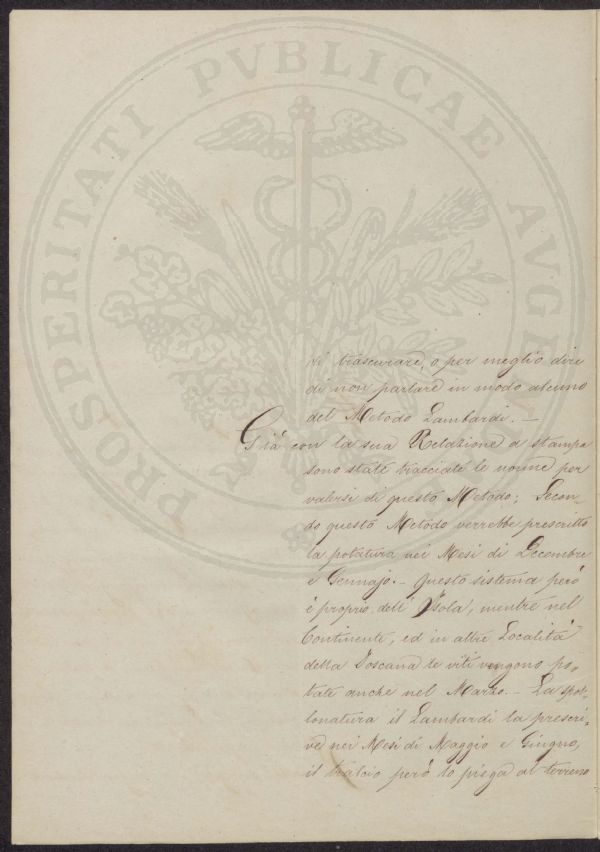 PROSPERITATI PVBLICAE AVGE
di trascurare, o per meglio dire
di non parlare in modo alcuno
del Metodo Lambardi. —
Già con la sua Relazione a stampa
sono state tracciate le norme per
valersi di questo Metodo; Secon-
do questo Metodo verrebbe prescritto
la potatura nei Mesi di Decembre
e Gennajo. — Questo sistema però
è proprio dell' Isola, mentre nel
Continente, ed in altre Località
della Toscana le viti vengono po-
tate anche nel Marzo. — La spol-
lonatura il Lambardi la prescri-
ve nei Mesi di Maggio e Giugno,
il tralcio però lo piega al terreno